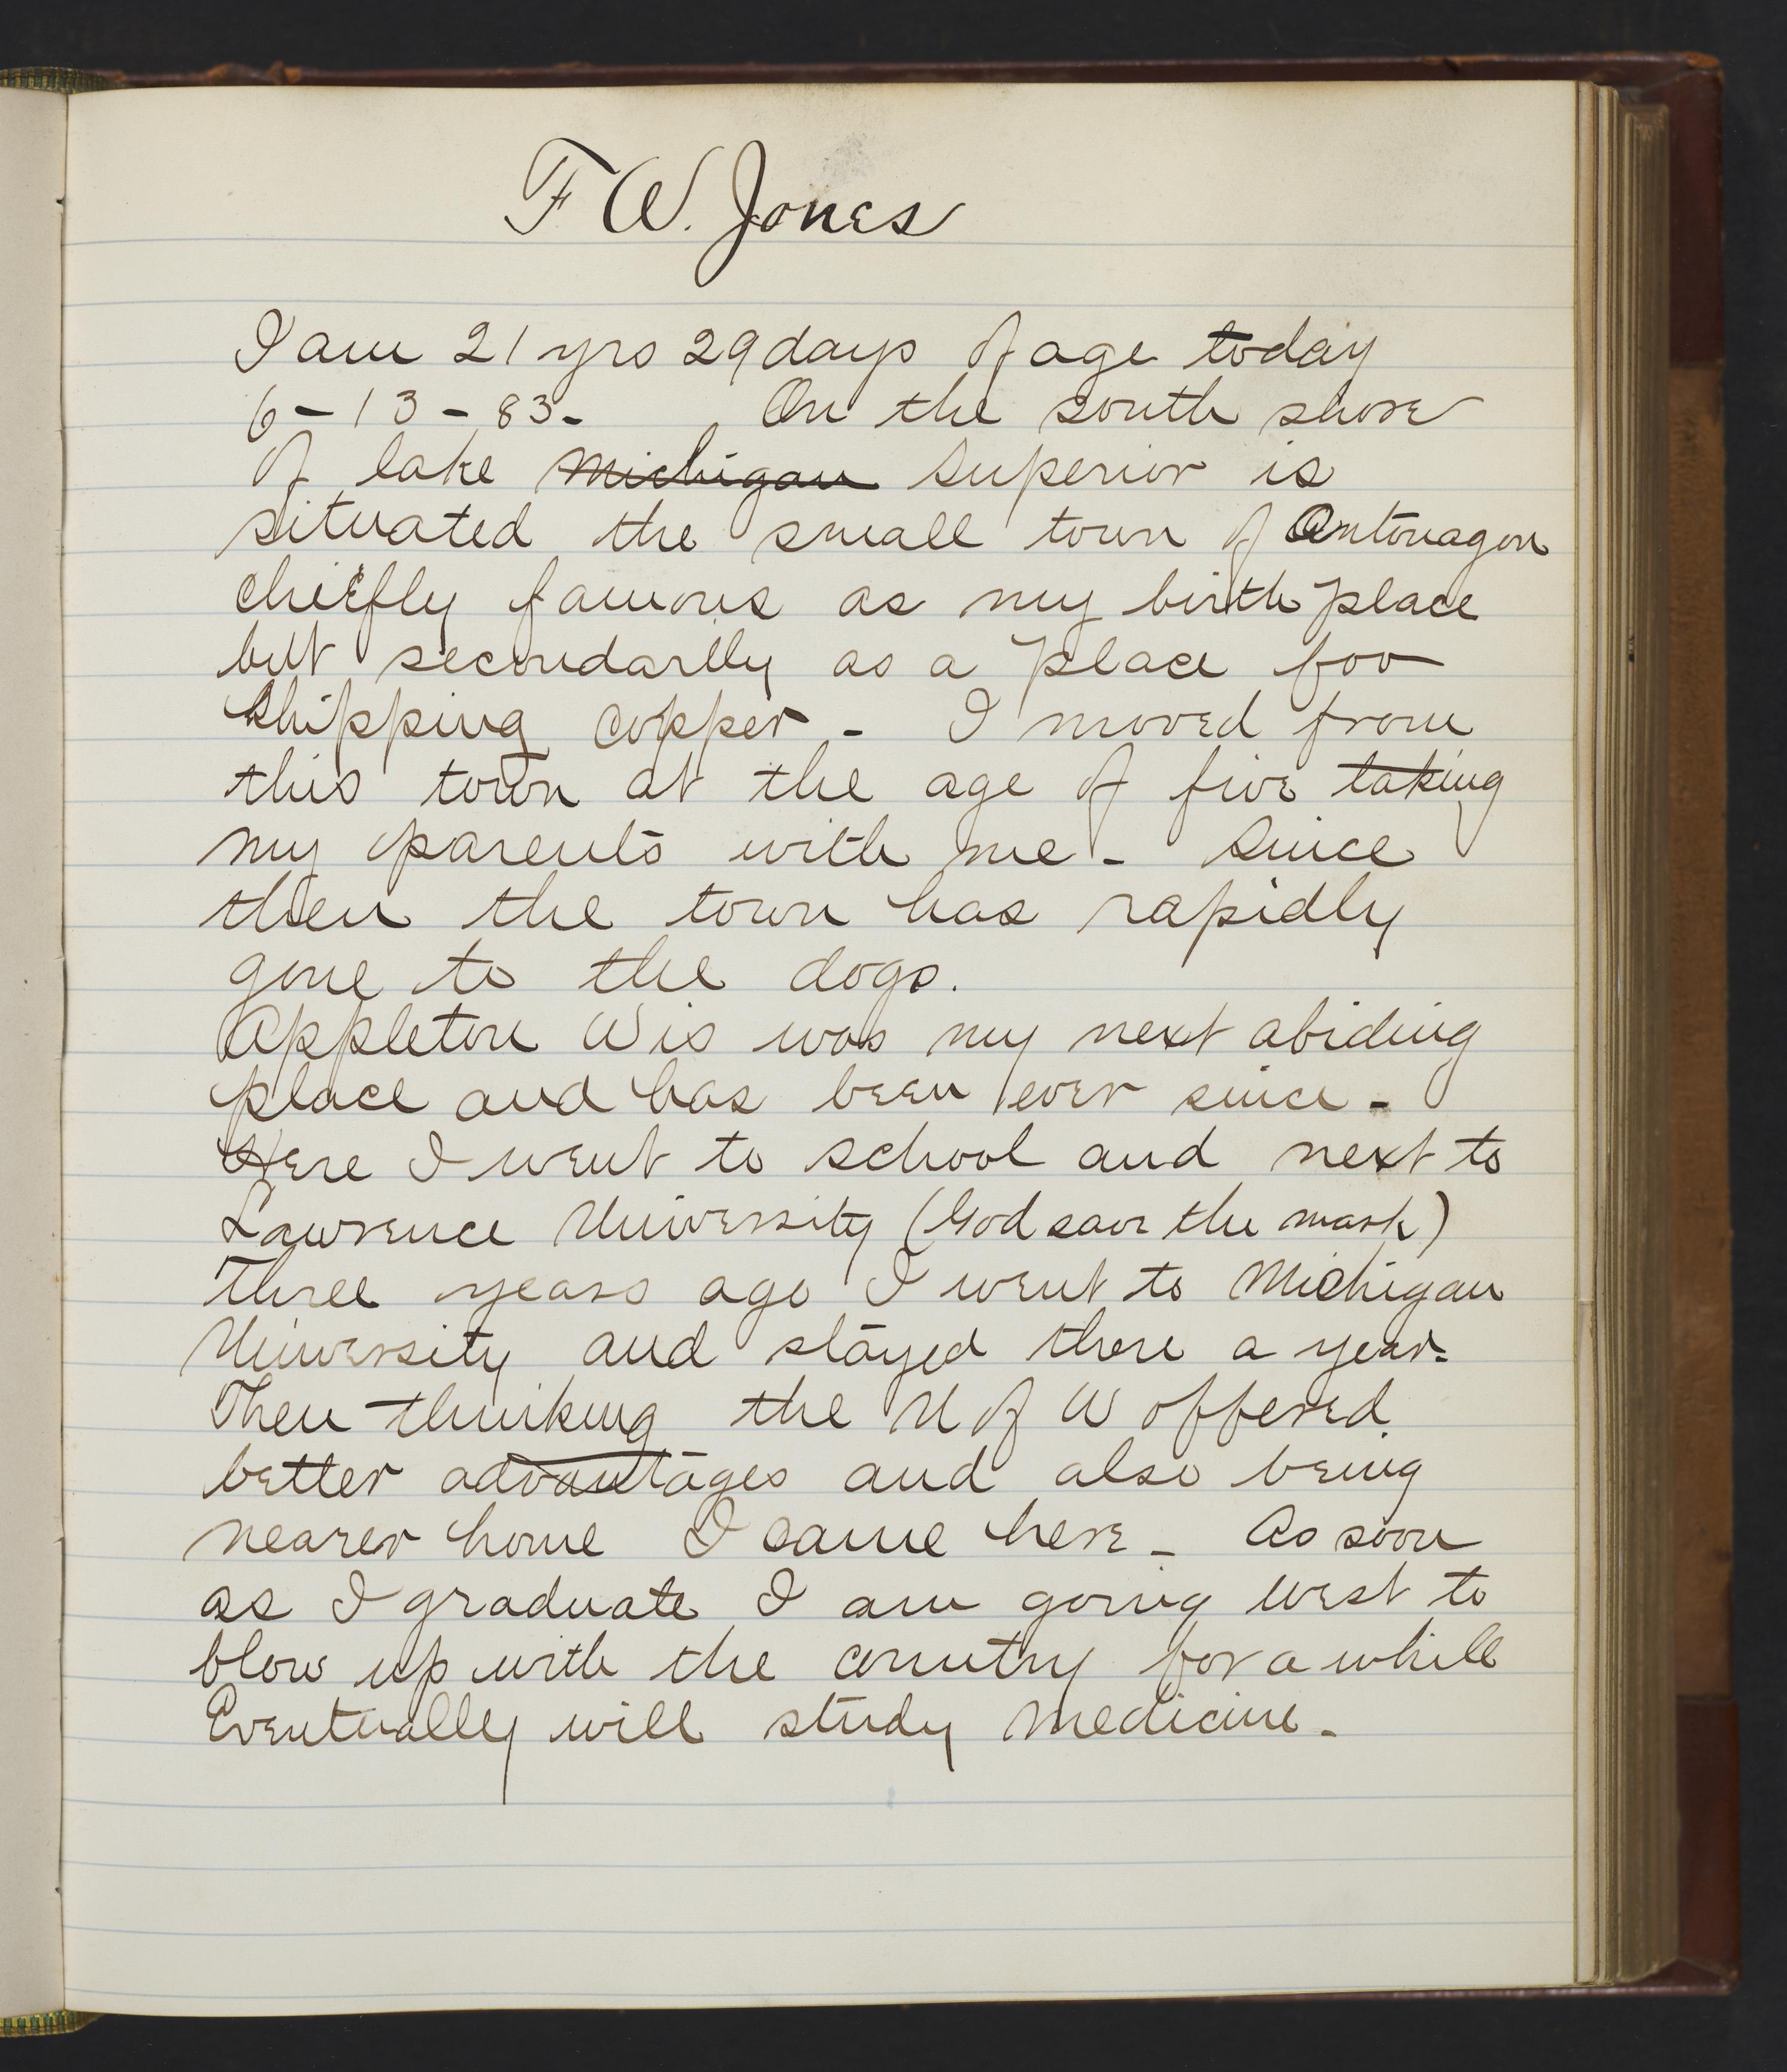 F W. Jones
I am 21 yrs 29 days of age today
6-13-83- On the south shore
of lake Michigan Superior is
situated the small town of Ontonagon
chiefly famous as my birth place
but secondarily as a place for
shipping copper - I moved from
this town at the age of five taking
my parents with me - Since
then the town has rapidly
gone to the dogs.
Appleton Wis was my next abiding
place and has been ever since -
Here I went to school and next to
Lawrence University (God save the mark)
Three years ago I went to Michigan
University and stayed there a year.
Then thinking the U of W offered
better advantages and also being
nearer home I came here - As soon
as I graduate I am going west to
blow up with the country for a while
Eventually will study medicine -